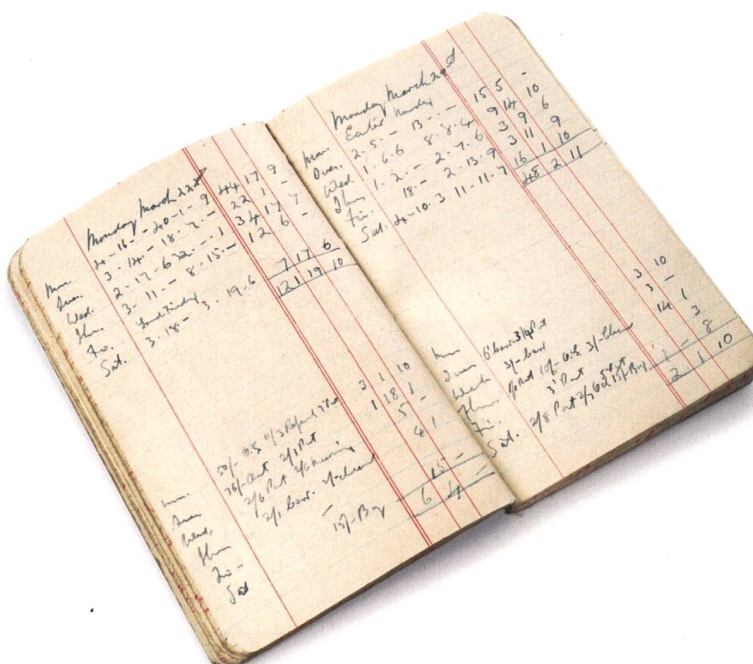 Monday March 22nd
Mon. 4-16-- 40-1-9 44 17 9
Tues. 3-14- 18-7- 22 1 -
Wed. 2-17-6 32---1 34 17 7
Thu. 3-11- 8-15- 12 6 -
Fri. Good Friday
Sat. 3-18- 3-19-6 7 17 6
121 19 10
Mon 50/- G.S. 11/3 Post 3 1 10
Tues Post 2/1 Post 1 18 1
Wed. 2/6 Post 2/6 5 -
Thu 2/1 2/- cleaner 4 1
Fri -
Sat 15/- Boy 15 -
6 4 -
Monday March 29th
Mon. Easter Monday
Tues. 2-5-- 13-- 15 5 -
Wed 1-6-6 8-8-4 9 14 10
Thu 1-2-- 2-7-6 3 9 6
Fri. 18-- 2-13-9 3 11 9
Sat. 4-10-3 11-11-7 16 1 10
48 2 11
Mon
Tues 3/4 Post 3 10
Wed 3/- 3 -
Thu Post 10/- G.S. 3/- Cleaner 14 1
Fri. 3d Post 3
Sat. 2/8 Post 15/- Boy 1 - 8
2 1 10